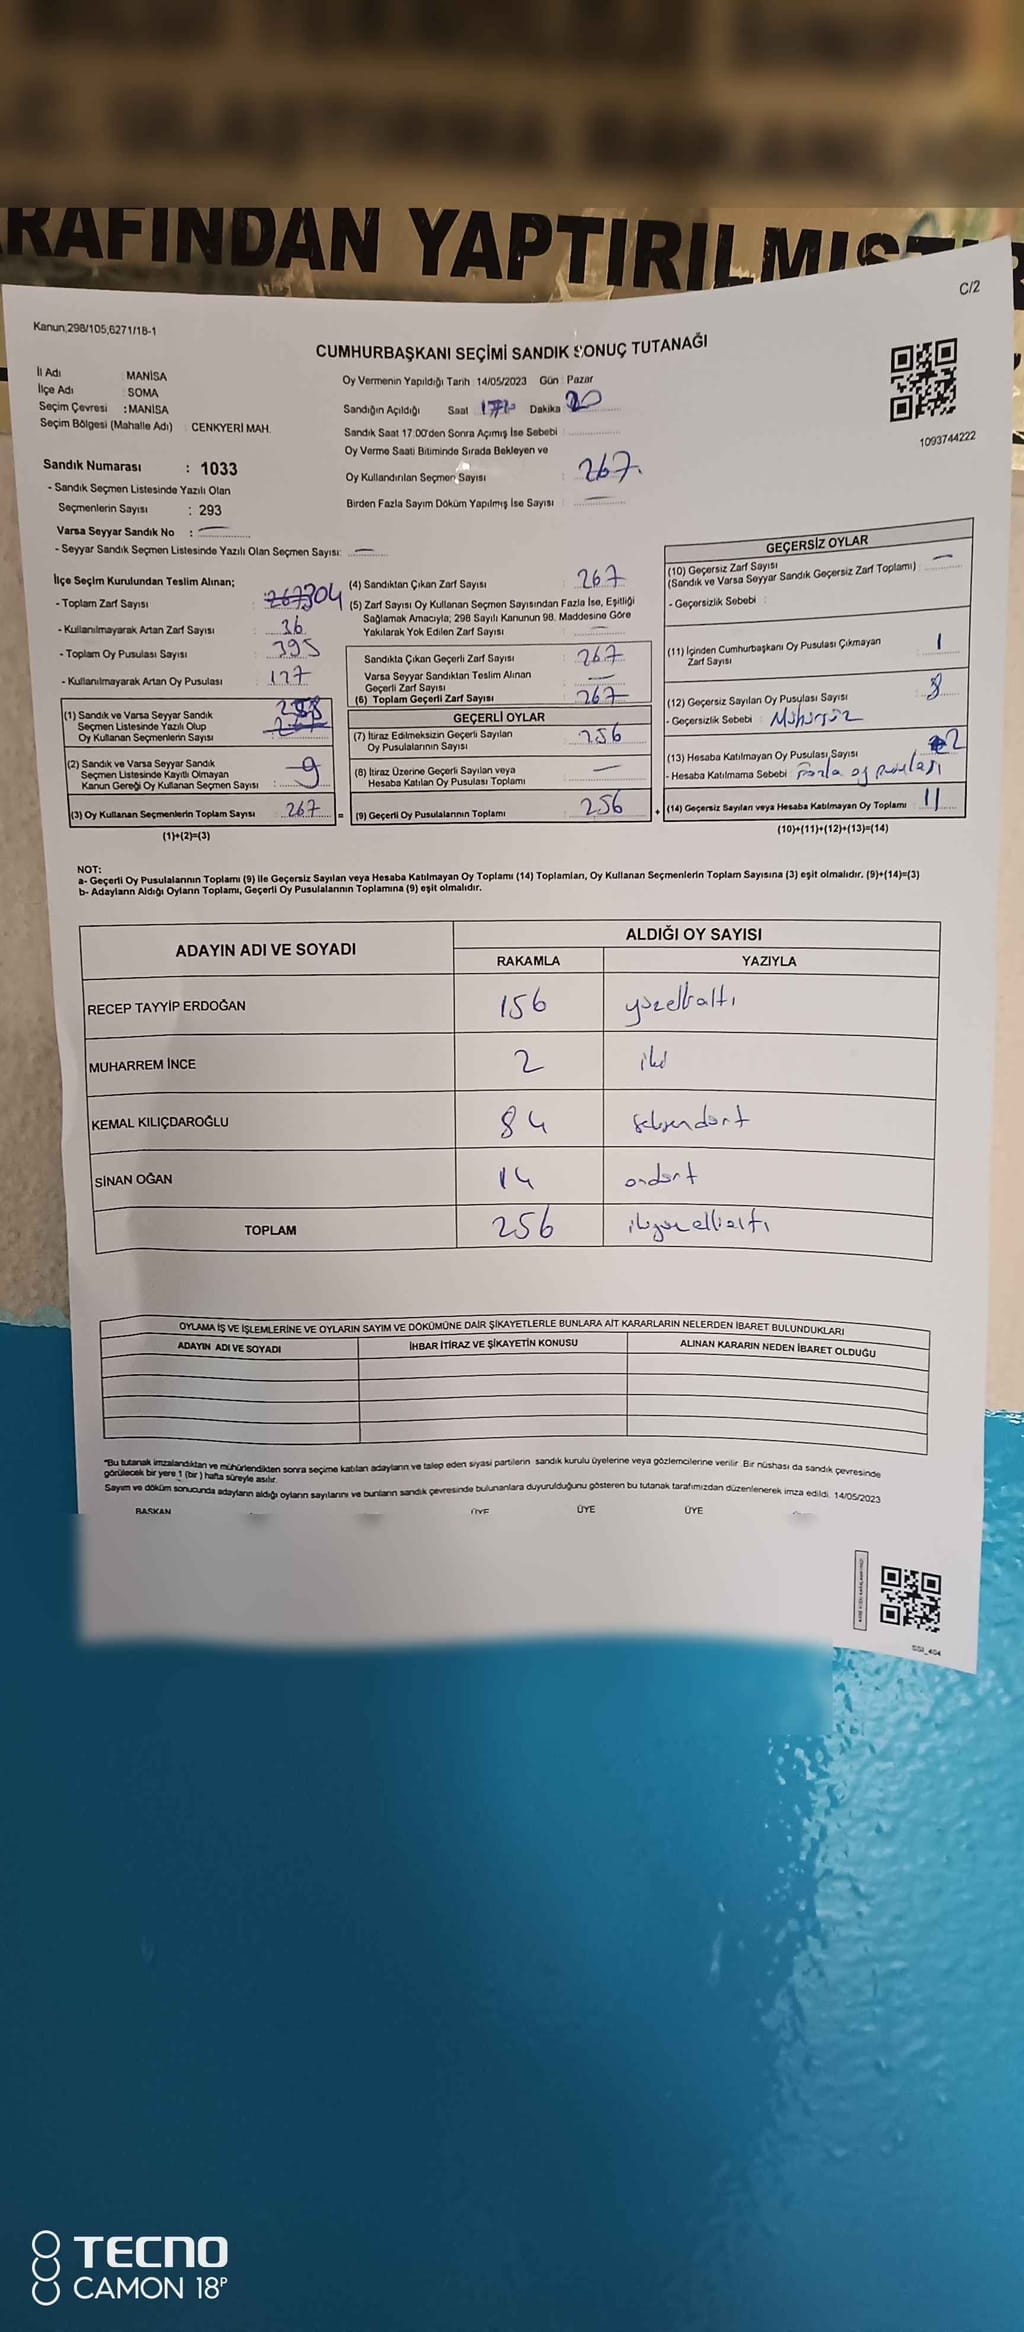 RAFINDAN YAPTIRILMIŞTIR
C/2
Kanun,298/105,6271/18-1
CUMHURBAŞKANI SEÇİMİ SANDIK SONUÇ TUTANAĞI
İl Adı : MANİSA
İlçe Adı : SOMA
Seçim Çevresi : MANİSA
Seçim Bölgesi (Mahalle Adı) : CENKYERİ MAH.
Oy Vermenin Yapıldığı Tarih : 14/05/2023 Gün : Pazar
Sandığın Açıldığı Saat Dakika 20
Sandık Saat 17.00'den Sonra Açımış İse Sebebi :
Oy Verme Saati Bitiminde Sırada Bekleyen ve
Oy Kullandırılan Seçmen Sayısı : 267
Birden Fazla Sayım Döküm Yapılmış İse Sayısı : —
1093744222
Sandık Numarası : 1033
- Sandık Seçmen Listesinde Yazılı Olan
Seçmenlerin Sayısı : 293
Varsa Seyyar Sandık No : —
- Seyyar Sandık Seçmen Listesinde Yazılı Olan Seçmen Sayısı: —
İlçe Seçim Kurulundan Teslim Alınan;
- Toplam Zarf Sayısı : 267 304
- Kullanılmayarak Artan Zarf Sayısı : 36
- Toplam Oy Pusulası Sayısı : 395
- Kullanılmayarak Artan Oy Pusulası : 127
(1) Sandık ve Varsa Seyyar Sandık
Seçmen Listesinde Yazılı Olup
Oy Kullanan Seçmenlerin Sayısı
(2) Sandık ve Varsa Seyyar Sandık
Seçmen Listesinde Kayıtlı Olmayan
Kanun Gereği Oy Kullanan Seçmen Sayısı : 9
(3) Oy Kullanan Seçmenlerin Toplam Sayısı : 267
(1)+(2)=(3)
(4) Sandıktan Çıkan Zarf Sayısı : 267
(5) Zarf Sayısı Oy Kullanan Seçmen Sayısından Fazla İse, Eşitliği
Sağlamak Amacıyla; 298 Sayılı Kanunun 98. Maddesine Göre
Yakılarak Yok Edilen Zarf Sayısı : —
Sandıkta Çıkan Geçerli Zarf Sayısı : 267
Varsa Seyyar Sandıktan Teslim Alınan
Geçerli Zarf Sayısı : —
(6) Toplam Geçerli Zarf Sayısı : 267
GEÇERLİ OYLAR
(7) İtiraz Edilmeksizin Geçerli Sayılan
Oy Pusulalarının Sayısı : 256
(8) İtiraz Üzerine Geçerli Sayılan veya
Hesaba Katılan Oy Pusulası Toplamı : —
= (9) Geçerli Oy Pusulalarının Toplamı : 256
GEÇERSİZ OYLAR
(10) Geçersiz Zarf Sayısı
(Sandık ve Varsa Seyyar Sandık Geçersiz Zarf Toplamı) : —
- Geçersizlik Sebebi :
(11) İçinden Cumhurbaşkanı Oy Pusulası Çıkmayan
Zarf Sayısı : 1
(12) Geçersiz Sayılan Oy Pusulası Sayısı : 8
- Geçersizlik Sebebi : Mühürsüz
(13) Hesaba Katılmayan Oy Pusulası Sayısı : 2
- Hesaba Katılmama Sebebi : Fazla oy pusulası
+ (14) Geçersiz Sayılan veya Hesaba Katılmayan Oy Toplamı : 11
(10)+(11)+(12)+(13)=(14)
NOT:
a- Geçerli Oy Pusulalarının Toplamı (9) ile Geçersiz Sayılan veya Hesaba Katılmayan Oy Toplamı (14) Toplamları, Oy Kullanan Seçmenlerin Toplam Sayısına (3) eşit olmalıdır. (9)+(14)=(3)
b- Adayların Aldığı Oyların Toplamı, Geçerli Oy Pusulalarının Toplamına (9) eşit olmalıdır.
ADAYIN ADI VE SOYADI ALDIĞI OY SAYISI
RAKAMLA YAZIYLA
RECEP TAYYİP ERDOĞAN 156 yüzelli altı
MUHARREM İNCE 2 iki
KEMAL KILIÇDAROĞLU 84 seksendört
SİNAN OĞAN 14 ondört
TOPLAM 256 ikiyüzellialtı
OYLAMA İŞ VE İŞLEMLERİNE VE OYLARIN SAYIM VE DÖKÜMÜNE DAİR ŞİKAYETLERLE BUNLARA AİT KARARLARIN NELERDEN İBARET BULUNDUKLARI
ADAYIN ADI VE SOYADI İHBAR İTİRAZ VE ŞİKAYETİN KONUSU ALINAN KARARIN NEDEN İBARET OLDUĞU
"Bu tutanak imzalandıktan ve mühürlendikten sonra seçime katılan adayların ve talep eden siyasi partilerin sandık kurulu üyelerine veya gözlemcilerine verilir. Bir nüshası da sandık çevresinde
görülecek bir yere 1 (bir ) hafta süreyle asılır.
Sayım ve döküm sonucunda adayların aldığı oyların sayılarını ve bunların sandık çevresinde bulunanlara duyurulduğunu gösteren bu tutanak tarafımızdan düzenlenerek imza edildi. 14/05/2023
BAŞKAN ÜYE ÜYE ÜYE
TECNO
CAMON 18P